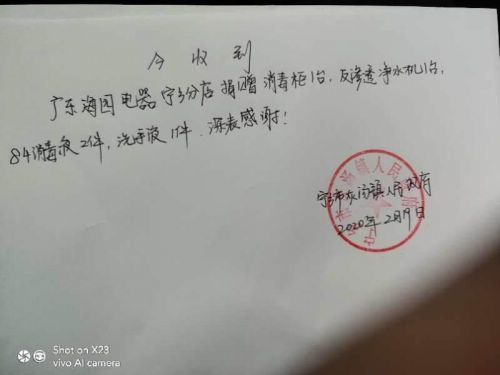 今收到
广东海固电器宁乡分店捐赠消毒柜1台,反渗透净水机1台,
84消毒液2件,洗手液1件.深表感谢!
宁乡市灰汤镇人民政府
2020年2月9日
Shot on X23
vivo AI camera